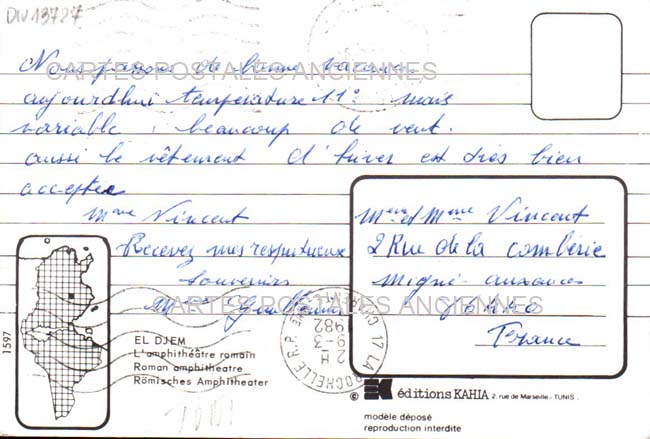 DIV13727
Nous passons de bonne vacances
CARTES POSTALES ANCIENNES
aujourdhui température 11° mais
variable, beaucoup de vent.
aussi le vêtement d'hiver est très bien
acceptée
Mme Vincent
Recevez mes respectueux
Souvenirs
Mr et Mme Vincent
2 Rue de la comberie
migné-auxances
86440
France
CARTES POSTALES ANCIENNES
17 LA ROCHELLE R.P.
2 H
9-3
1982
1597
EL DJEM
L'amphithéâtre romain
Roman amphitheatre
Römisches Amphitheater
© éditions KAHIA 2, rue de Marseille - TUNIS.
modèle déposé
reproduction interdite